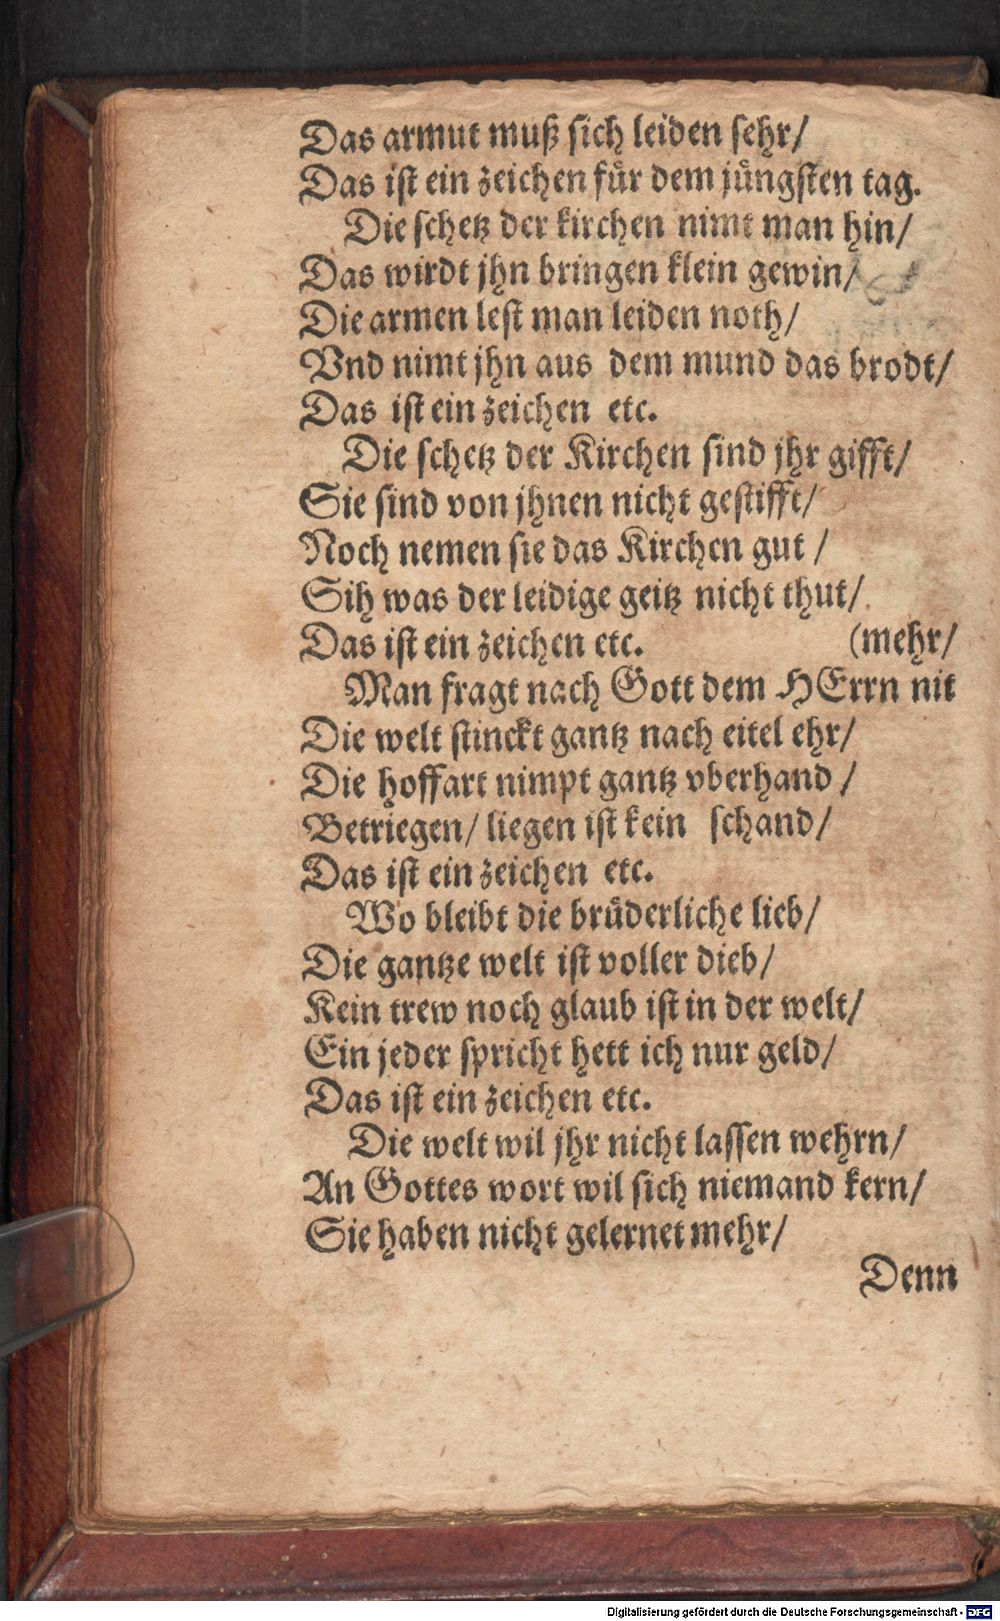 Das armut muß sich leiden sehr/
Das ist ein zeichen für dem jüngsten tag.
Die schetz der kirchen nimt man hin/
Das wirdt jhn bringen klein gewin/
Die armen lest man leiden noth/
Vnd nimt jhn aus dem mund das brodt/
Das ist ein zeichen etc.
Die schetz der Kirchen sind jhr gifft/
Sie sind von jhnen nicht gestifft/
Noch nemen sie das Kirchen gut /
Sih was der leidige geitz nicht thut/
Das ist ein zeichen etc. (mehr/
Man fragt nach Gott dem HErrn nit
Die welt stinckt gantz nach eitel ehr/
Die hoffart nimpt gantz vberhand /
Betriegen/ liegen ist kein schand/
Das ist ein zeichen etc.
Wo bleibt die brüderliche lieb/
Die gantze welt ist voller dieb/
Kein trew noch glaub ist in der welt/
Ein jeder spricht hett ich nur geld/
Das ist ein zeichen etc.
Die welt wil jhr nicht lassen wehrn/
An Gottes wort wil sich niemand kern/
Sie haben nicht gelernet mehr/
Denn
Digitalisierung gefördert durch die Deutsche Forschungsgemeinschaft - DFG